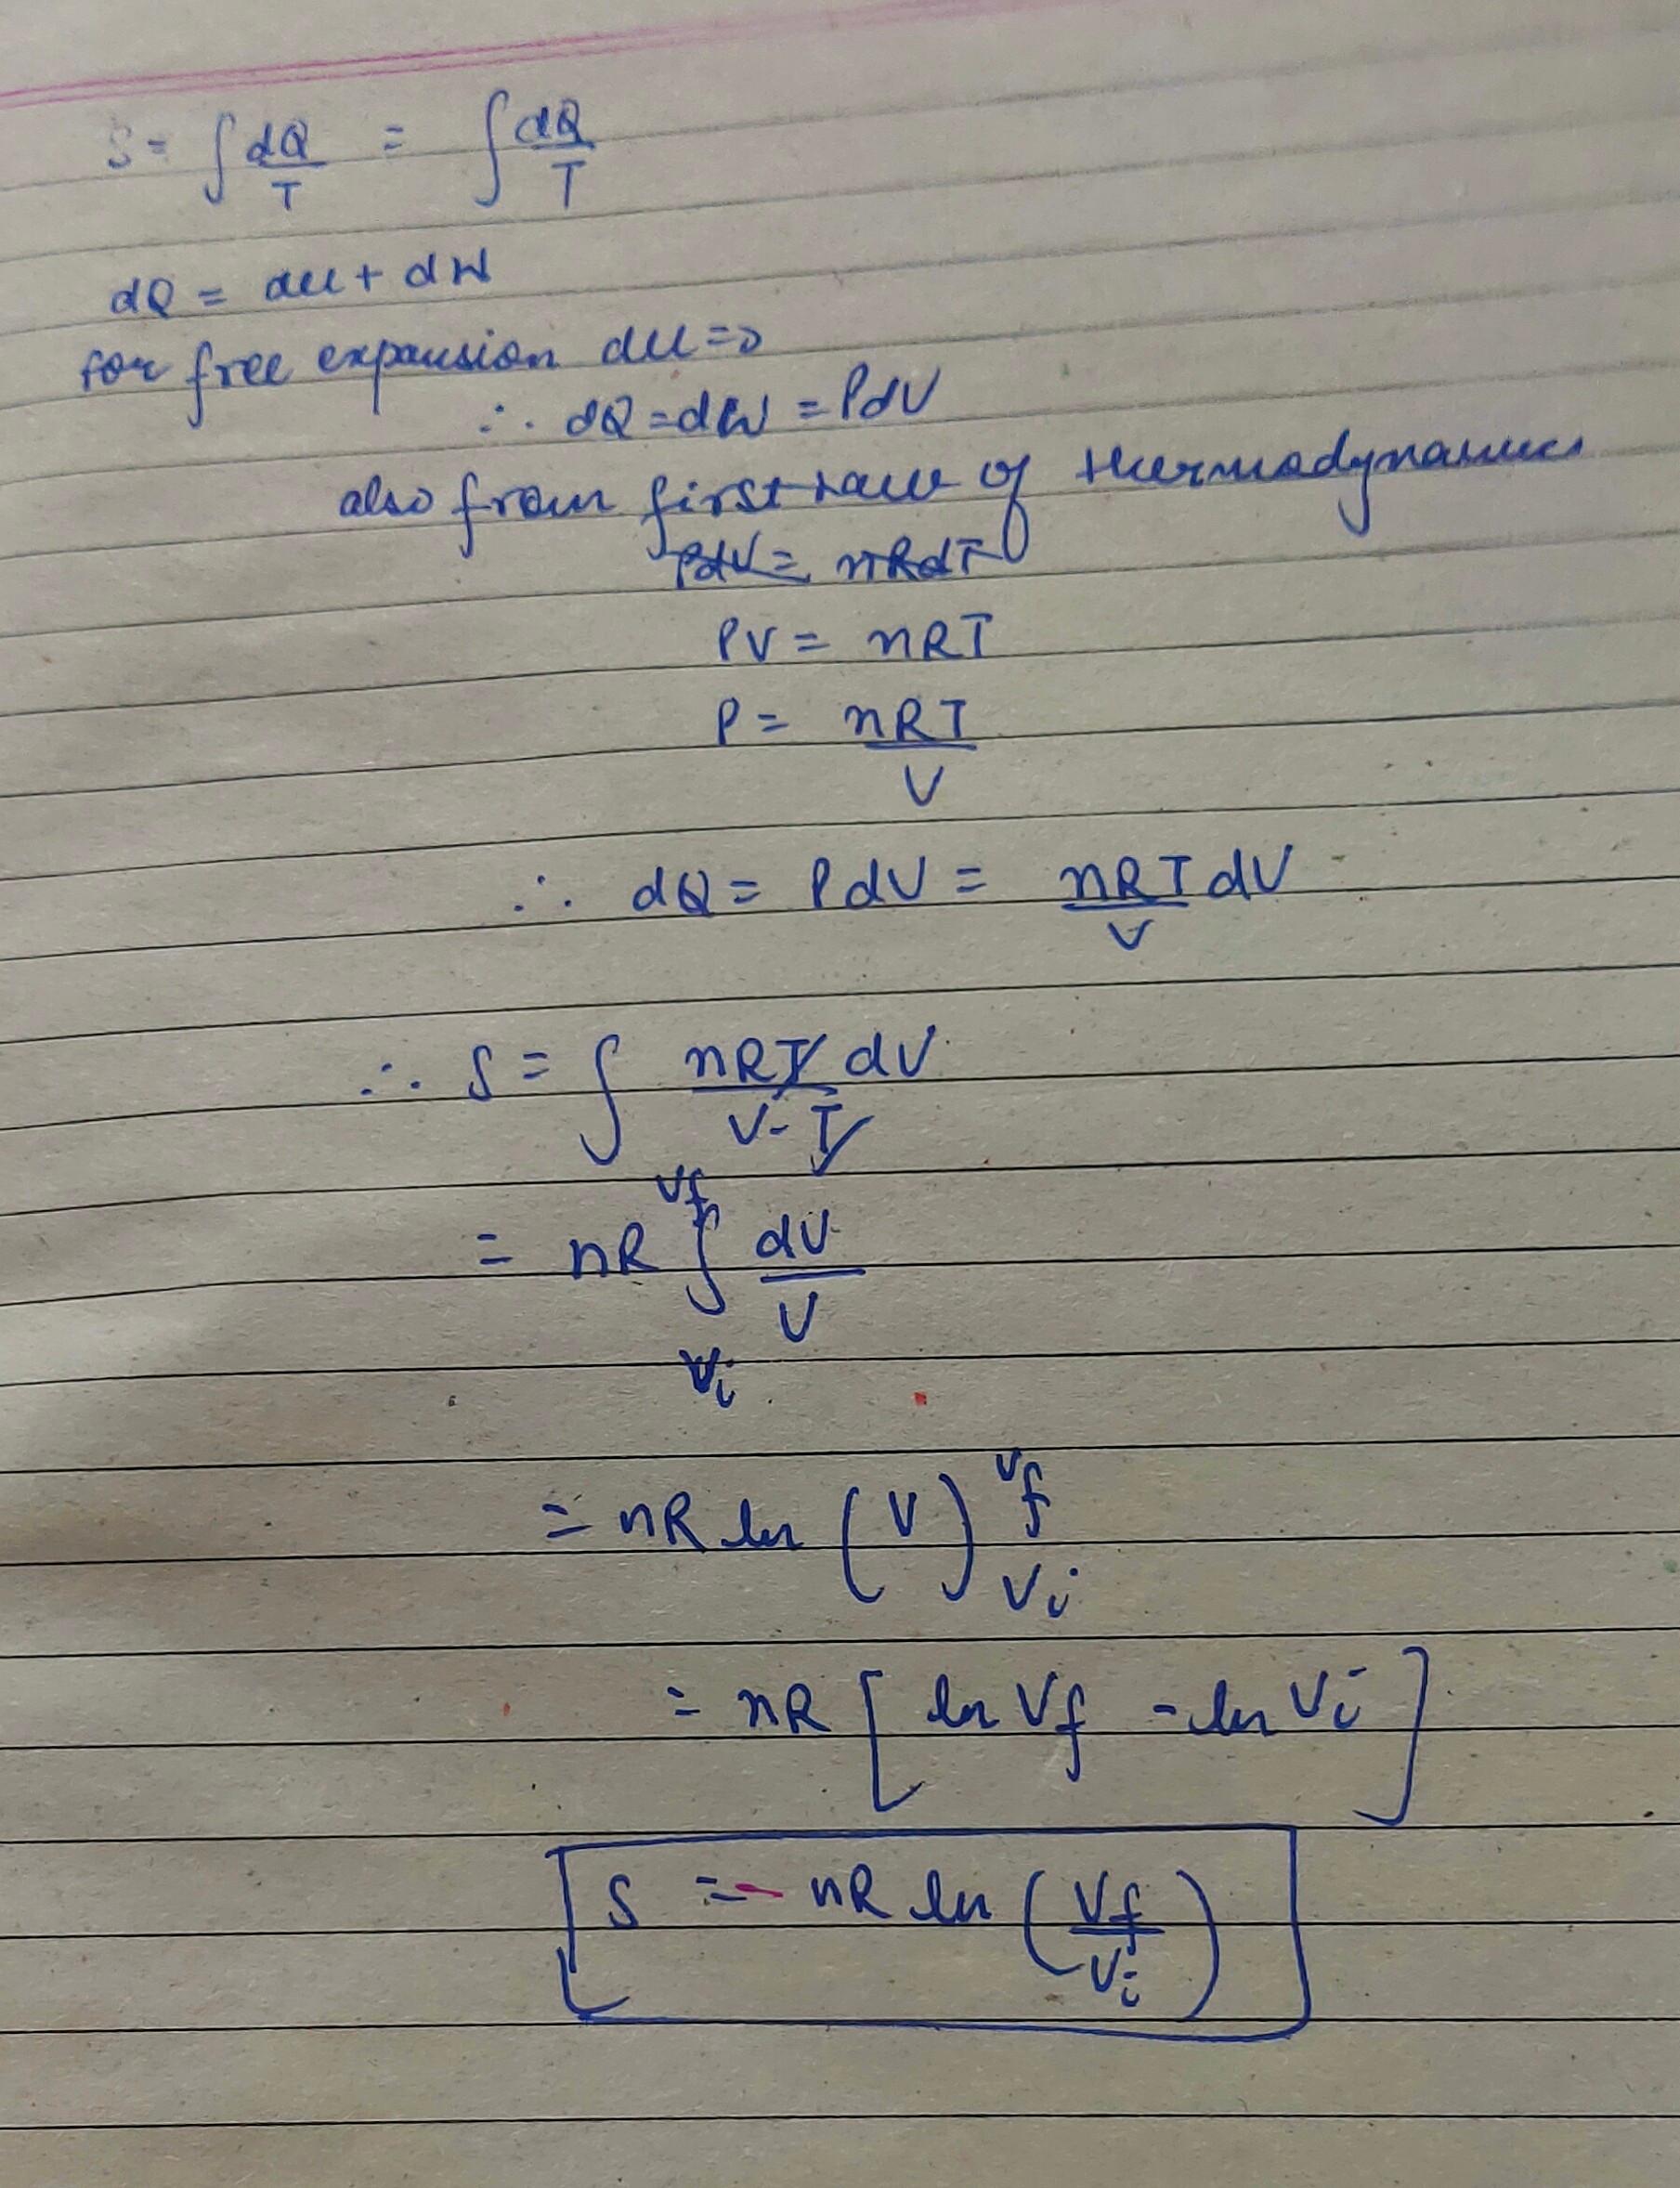 S = ∫ dQ/T = ∫ dQ/T
dQ = du + dW
for free expansion du = 0
∴ dQ = dW = PdV
also from first law of thermodynamics
PdV = nRdT
PV = nRT
P = nRT/V
∴ dQ = PdV = nRT/V dV
∴ S = ∫ nRT dV / V·T
= nR ∫_Vi^Vf dV/V
= nR ln (V)_Vi^Vf
= nR [ln Vf - ln Vi]
S = nR ln (Vf/Vi)